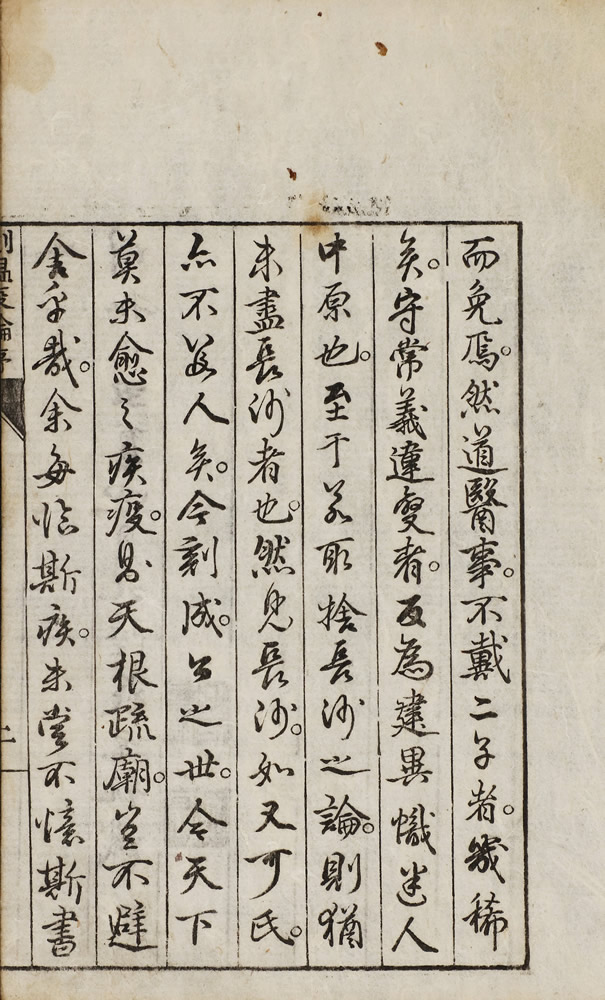 而免焉。然道醫事。不戴二子者。幾稀
矣。守常義達變者。反為建異幟迷人
中原也。至于若取捨長沙之論。則猶
未盡長沙者也。然見長沙。如又可氏。
亦不
人矣。今刻成。公之世。令天下
莫未愈之疾疫。
天根
廟。豈不
舍乎哉。余每臨斯疾。未嘗不憶斯書
刻溫疫論序
二